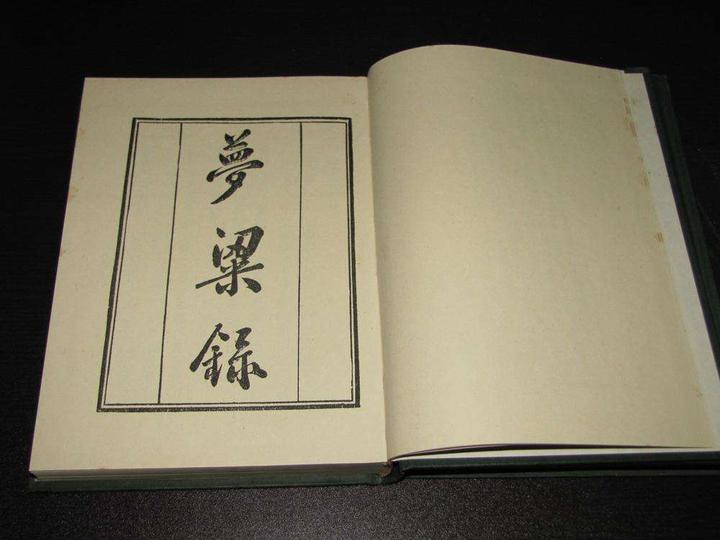 夢粱錄